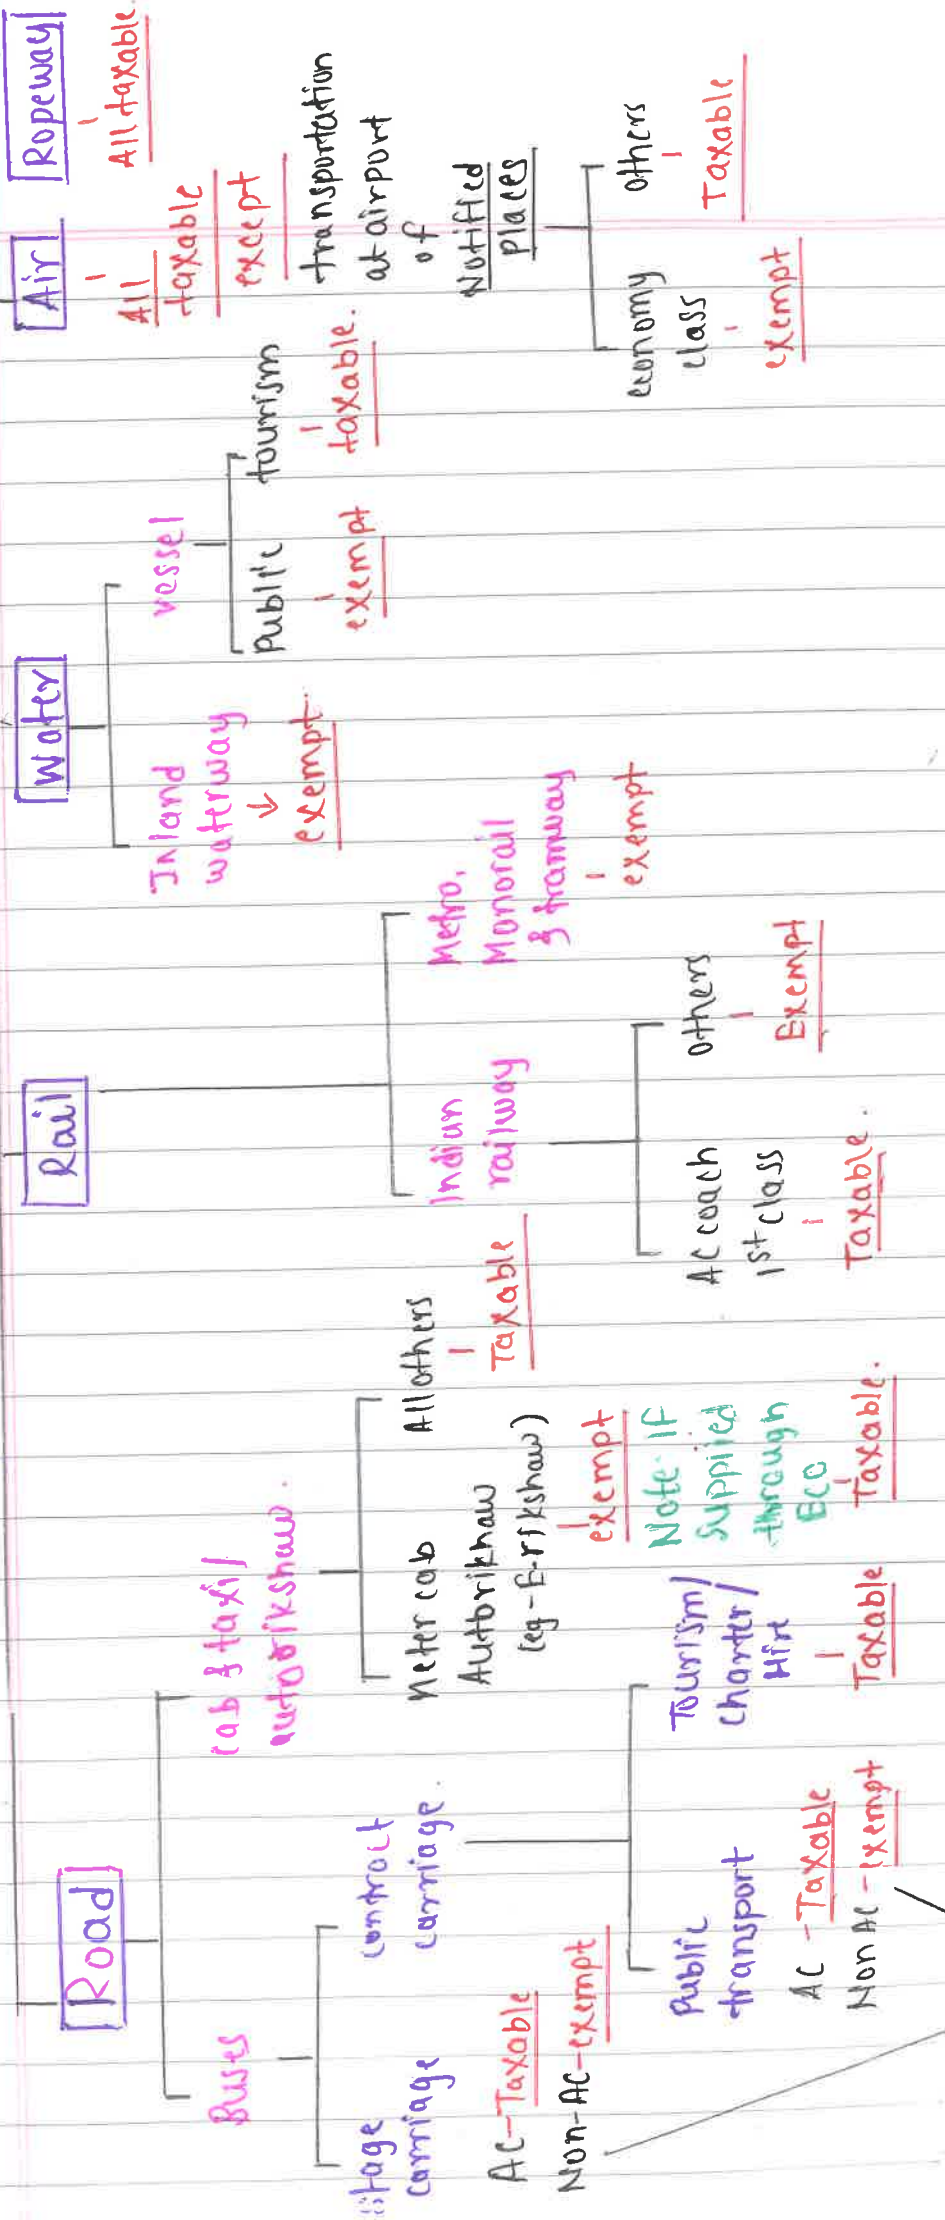 Road
Buses
stage
carriage
AC-Taxable
Non-AC-exempt
contract
carriage.
Public
transport
AC - Taxable
Non AC - exempt
Tourism/
charter/
Hire
Taxable
cab & taxi/
autorikshaw.
Meter cab
Autorikhaw
(eg-E-rikshaw)
exempt
Note: IF
supplied
through
ECO
Taxable.
All others
Taxable
Rail
Indian
railway
AC coach
1st class
Taxable.
others
Exempt
Metro,
Monorail
& tramway
exempt
Water
Inland
waterway
exempt.
vessel
Public
exempt
tourism
taxable.
Air
All
taxable
except
transportation
at airport
of
Notified
places
economy
class
exempt
others
Taxable
Ropeway
All taxable.